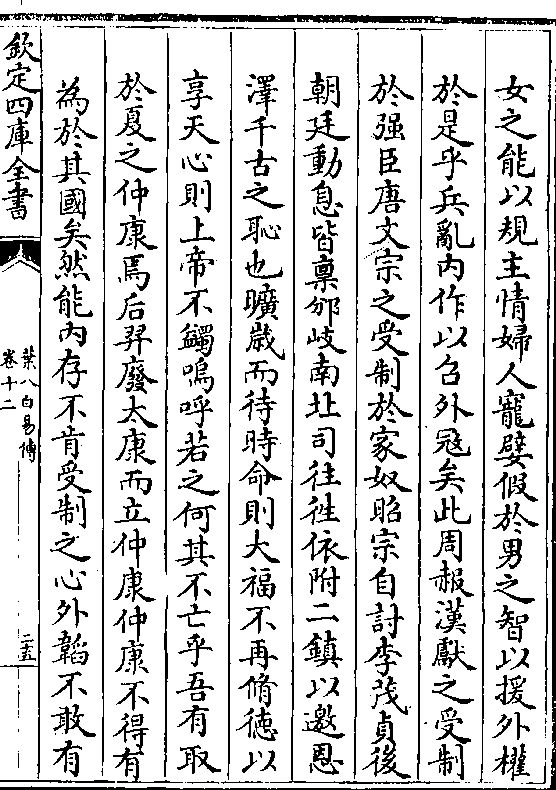 女之能以規主情婦人寵嬖假於男之智以援外權
於是乎兵亂内作以召外冦矣此周赧漢獻之受制
於强臣唐文宗之受制於家奴昭宗自討李茂貞後
朝廷動息皆稟邠岐南北司往徃依附二鎮以邀恩
澤千古之恥也曠歲而待時命則大福不再脩德以
享天心則上帝不蠲嗚呼若之何其不亡乎吾有取
於夏之仲康焉后羿廢太康而立仲康仲康不得有
為於其國矣然能内存不肯受制之心外韜不敢有
欽定四庫全書
葉八白易傳
卷十二
二五